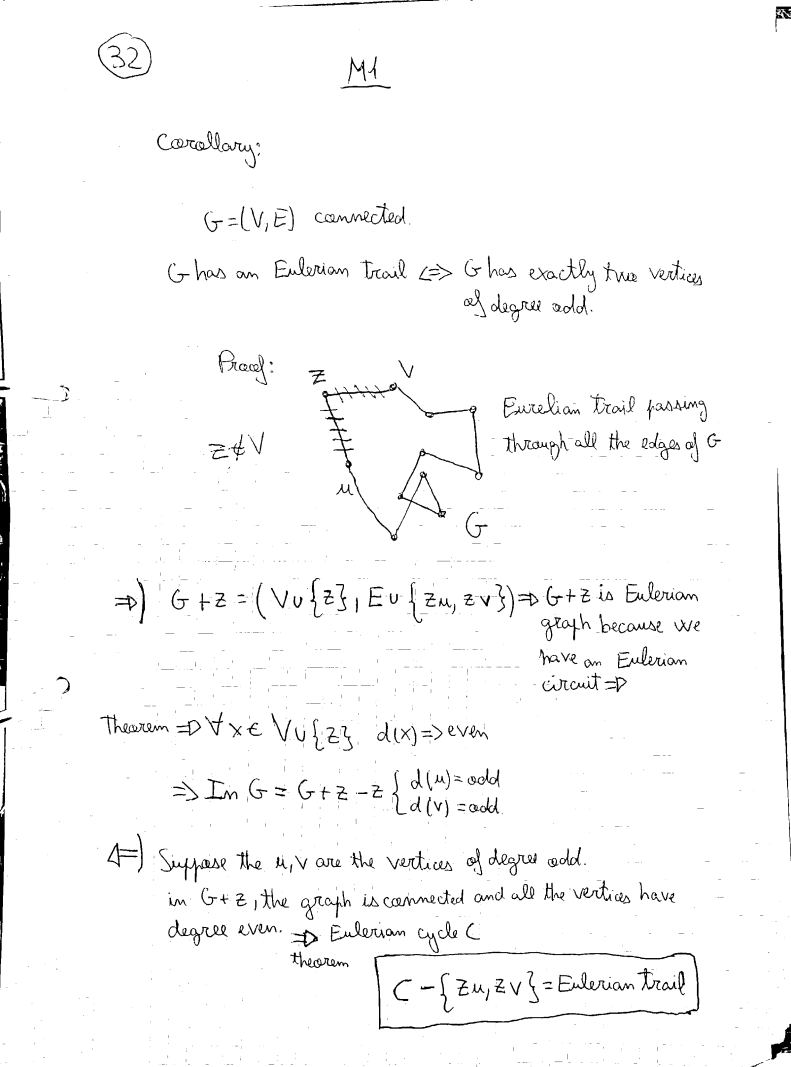 32
M1
Corollary:
G=(V,E) connected.
G has an Eulerian trail <=> G has exactly two vertices
of degree odd.
Proof:
z
v
z ∉ V
u
G
Eurelian trail passing
through all the edges of G
⇒) G+z = (V∪{z}, E∪{zu, zv}) ⇒ G+z is Eulerian
graph because we
have an Eulerian
circuit ⇒
Theorem ⇒ ∀x∈ V∪{z} d(x) => even
=> In G = G+z-z { d(u) = odd
d(v) = odd.
⇐) Suppose the u,v are the vertices of degree odd.
in G+z, the graph is connected and all the vertices have
degree even. ⇒ Eulerian cycle C
theorem
C-{zu,zv} = Eulerian trail